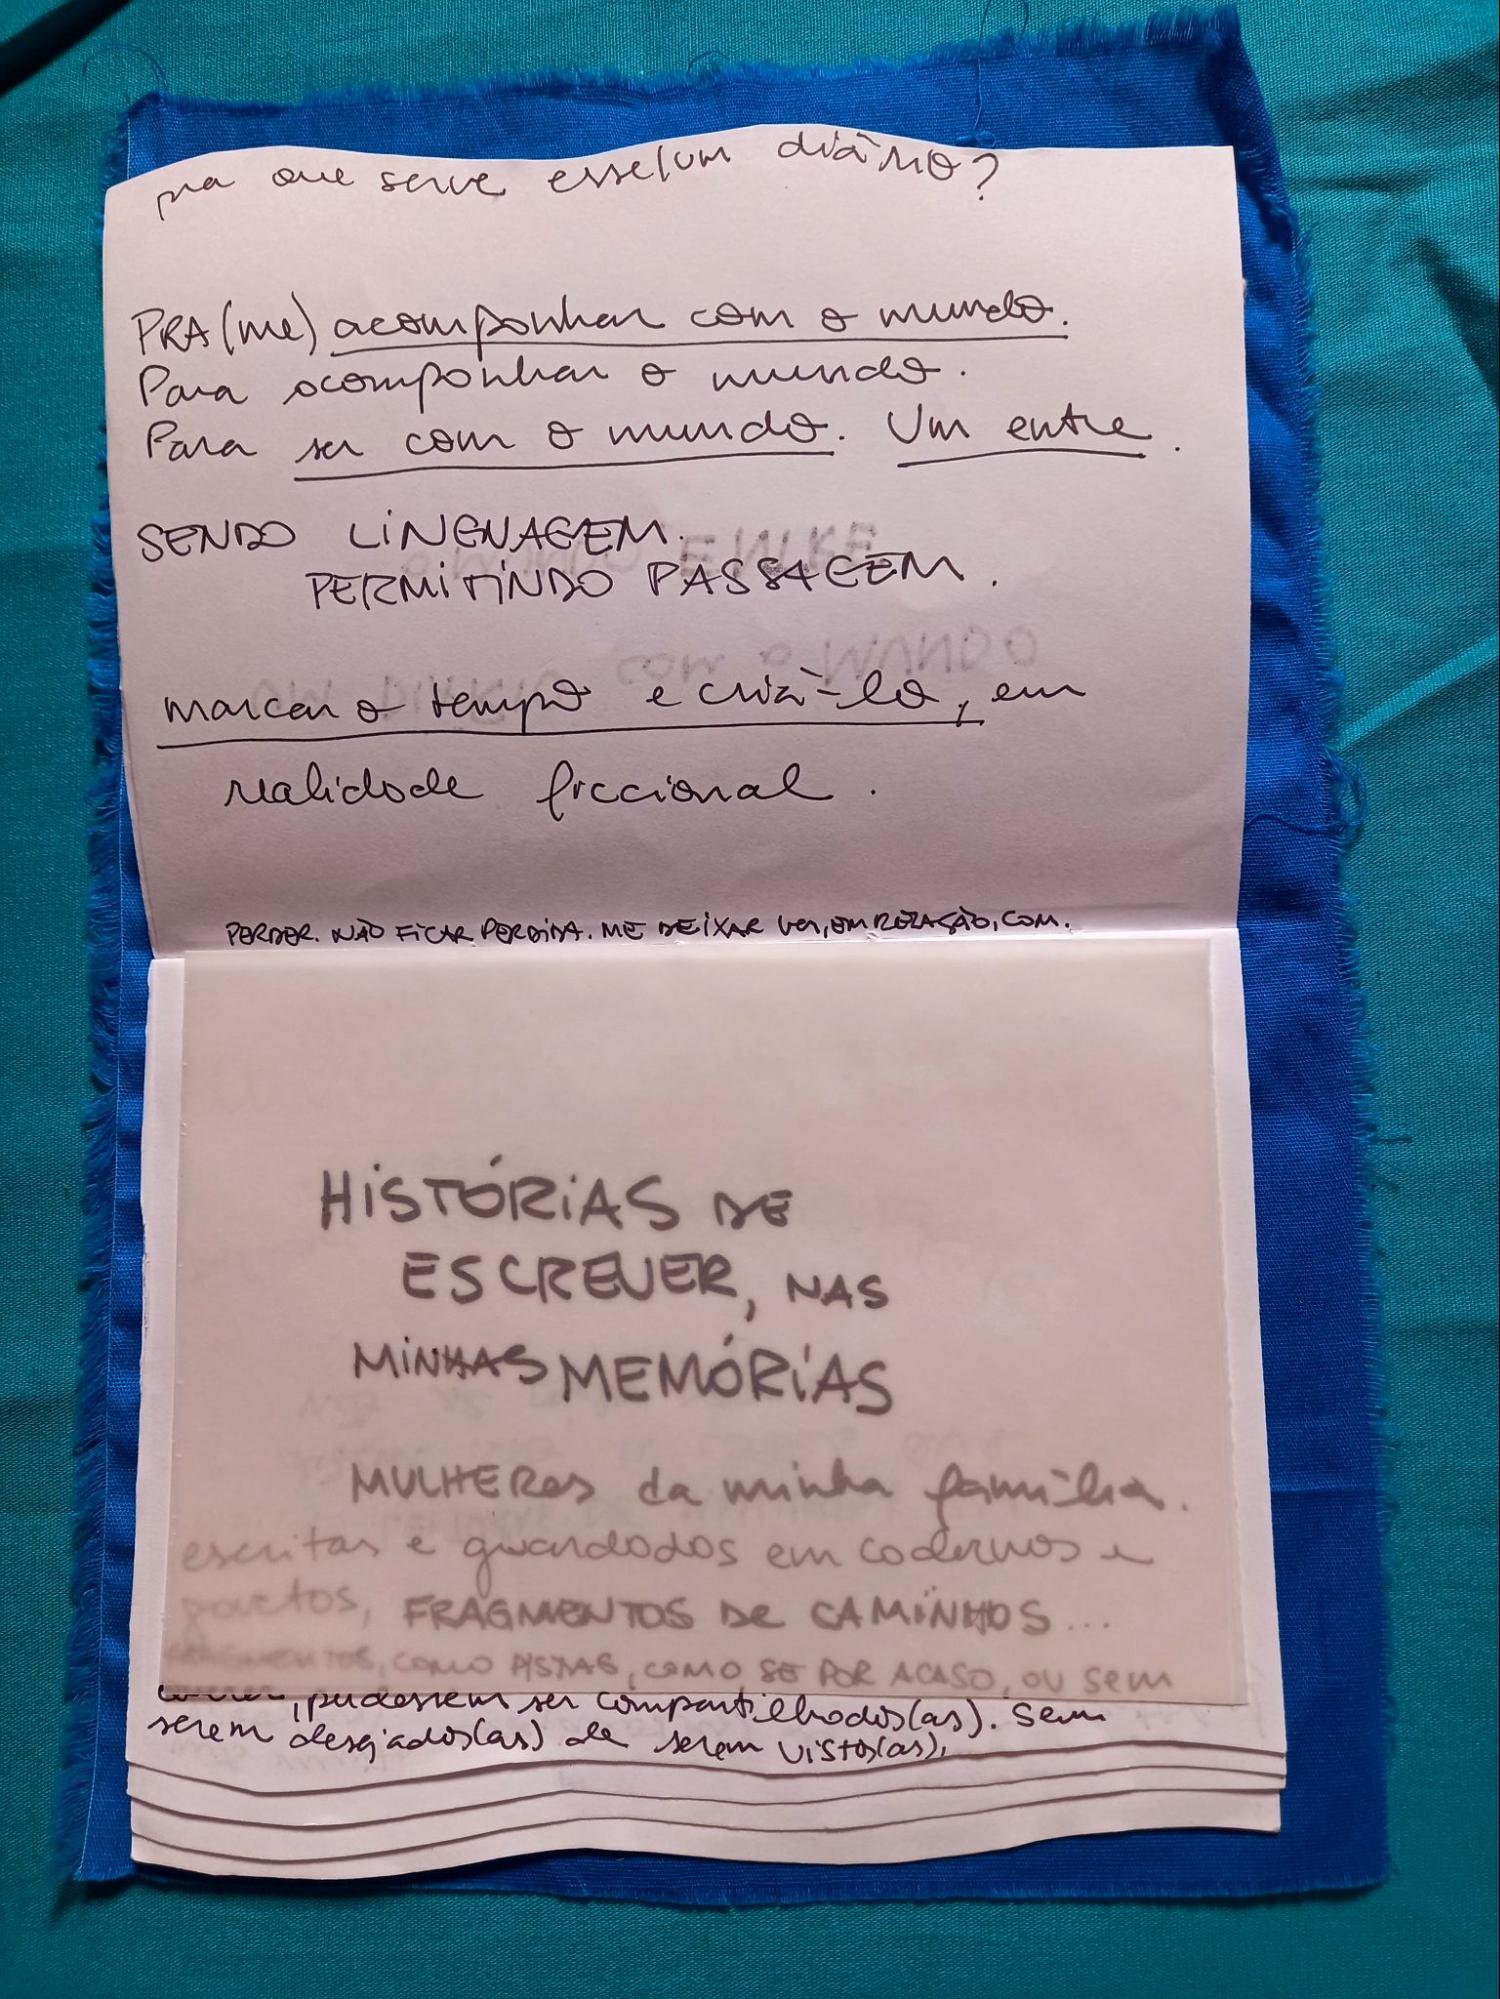 pra que serve esse/um diário?
PRA (me) acompanhar com o mundo.
Para acompanhar o mundo.
Para ser com o mundo. Um entre.
SENDO LINGUAGEM.
PERMITINDO PASSAGEM.
marcar o tempo e criá-lo, em
realidade ficcional.
PERDER. NÃO FICAR PERDIDA. ME DEIXAR ver, EM RELAÇÃO, COM.
HISTÓRIAS DE
ESCREVER, NAS
MINHAS MEMÓRIAS
MULHERES da minha família.
escritas e guardados em cadernos e
FRAGMENTOS DE CAMINHOS...
FRAGMENTOS, COMO PISTAS, COMO SE POR ACASO, OU SEM
pudessem ser compartilhados(as). Sem
serem desejados(as) de serem vistos(as),